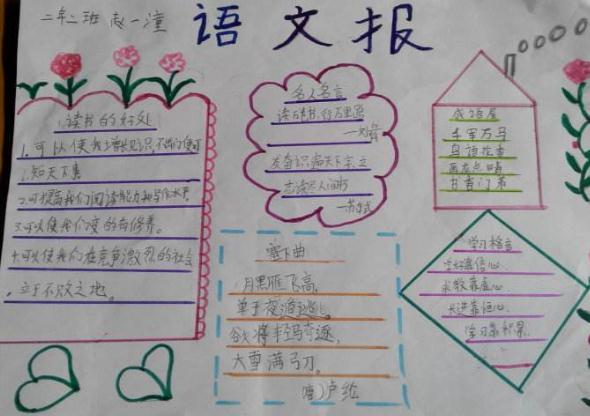 二年二班 赵一潼
语文报
读书的好处
1.可以使我增长见识,不出门便可
知天下事
2.可提高我们阅读能力和写作水平
3.可以使我们变的有修养。
4.可以使我们在竞争激烈的社会
立于不败之地。
名人名言
读万卷书,行万里路
发奋识遍天下字,立
志读尽人间书
—苏轼
成语屋
千军万马
鸟语花香
画龙点睛
塞下曲
月黑雁飞高,
单于夜遁逃。
欲将轻骑逐,
大雪满弓刀。
唐)卢纶
学习格言
学好靠信心,
求教靠虚心,
长进靠恒心,
学习靠积累。